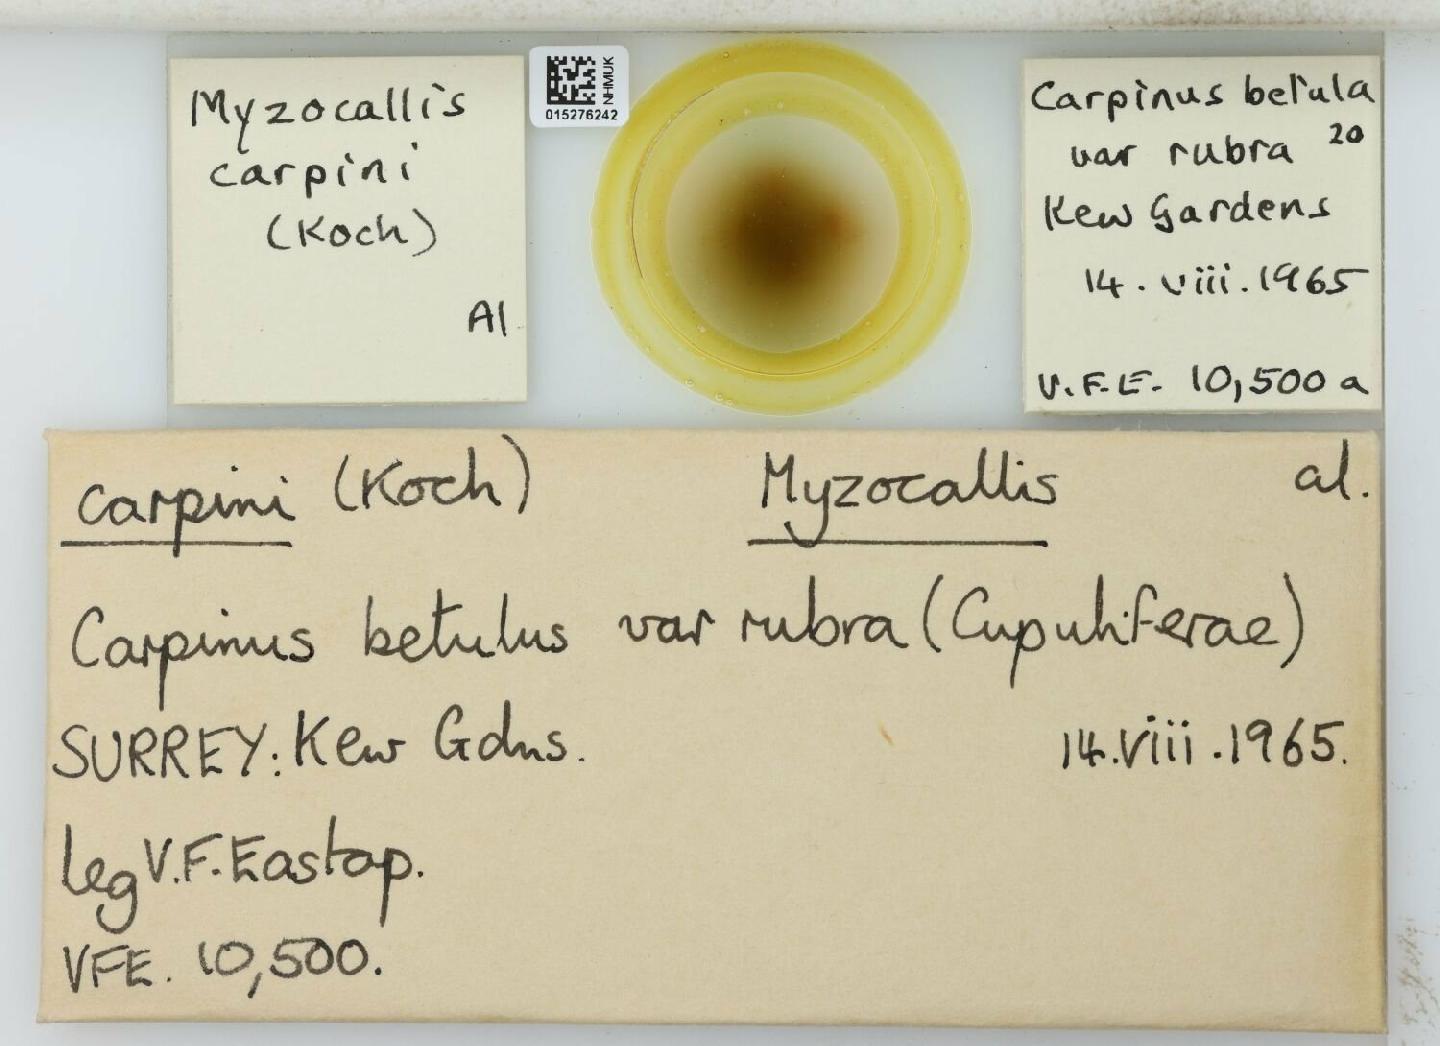 Myzocallis
carpini
(Koch)
Al
NHMUK
015276242
Carpinus betula
var rubra 20
Kew Gardens
14.viii.1965
V.F.E. 10,500a
carpini (Koch) Myzocallis al.
Carpinus betulus var rubra (Cupuliferae)
SURREY: Kew Gdns. 14.viii.1965.
leg V.F. Eastop.
VFE. 10,500.